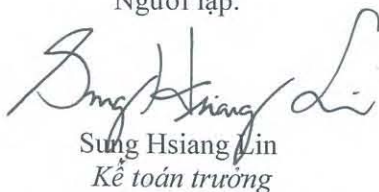 Người lập.
Sung Hsiang Lin
Sung Hsiang Lin
Kế toán trưởng